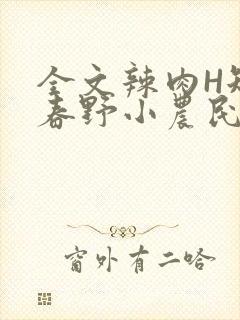 全文辣肉H短
春野小农民
窗外有二哈